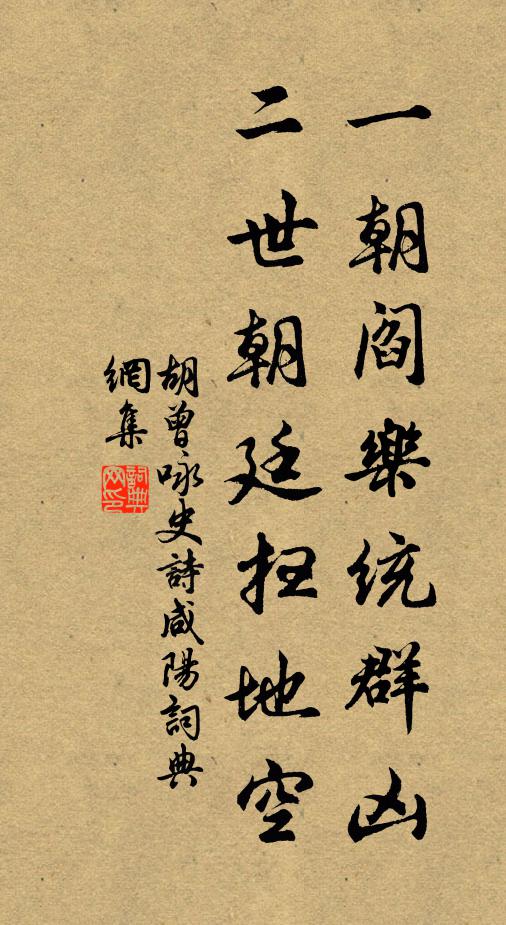 一朝閻樂統群凶
二世朝廷扫地空
胡曾咏史詩咸陽詞典
網集
詞典
网印